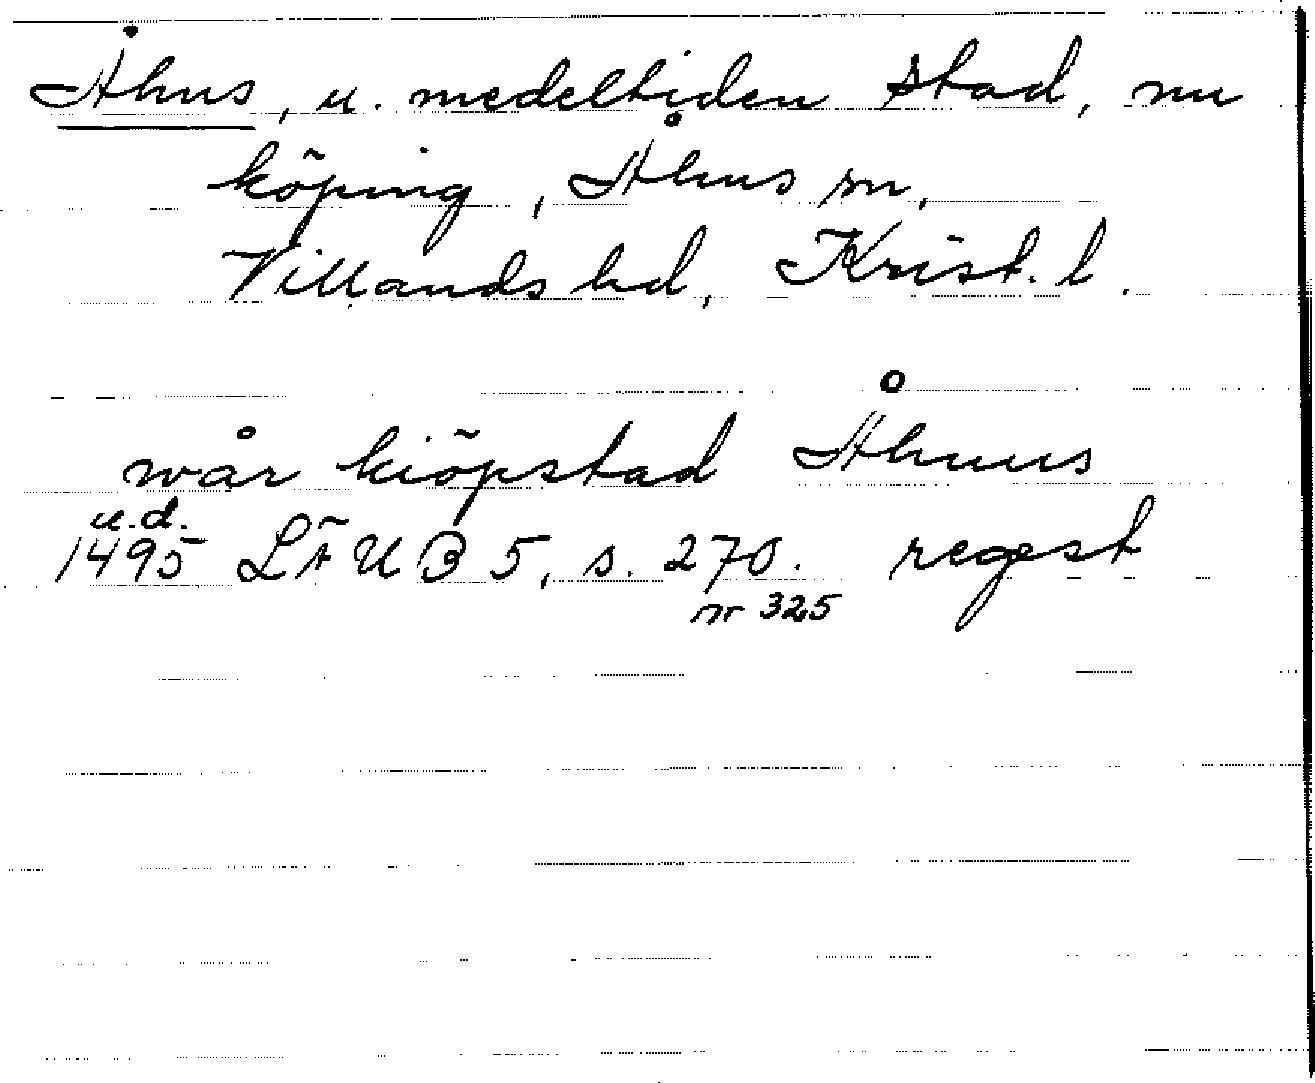 Åhus, u. medeltiden stad, nu
köping, Åhus sn,
Villands hd, Krist. l.
wår kiöpstad Åhuus
u.d.
1495 LÄUB 5, s. 270. regest
nr 325